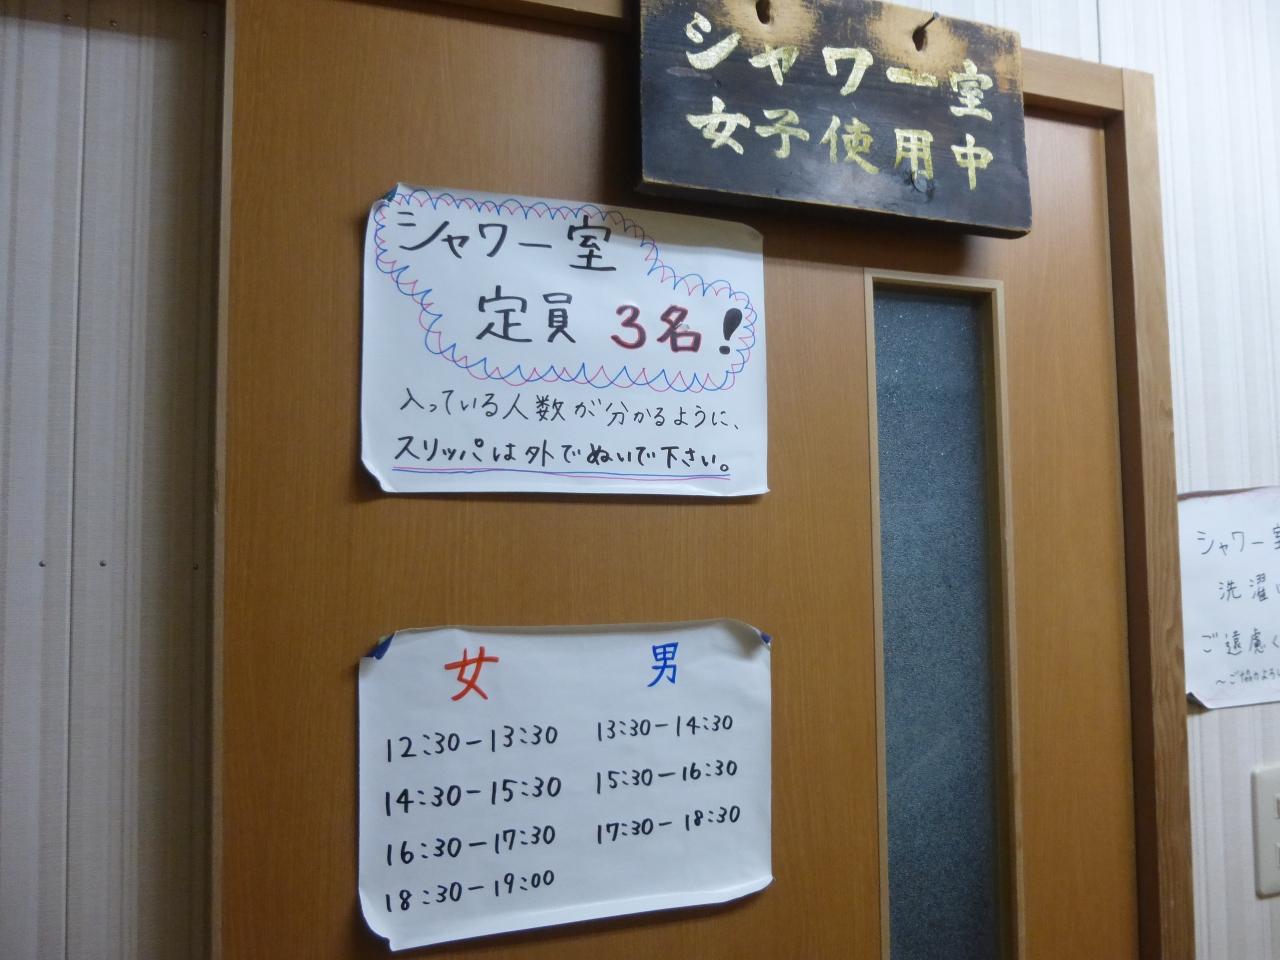 シャワー室
女子使用中
シャワー室
定員 3名!
入っている人数が分かるように、
スリッパは外でぬいで下さい。
女 男
12:30-13:30 13:30-14:30
14:30-15:30 15:30-16:30
16:30-17:30 17:30-18:30
18:30-19:00
シャワー室
洗濯
ご遠慮く